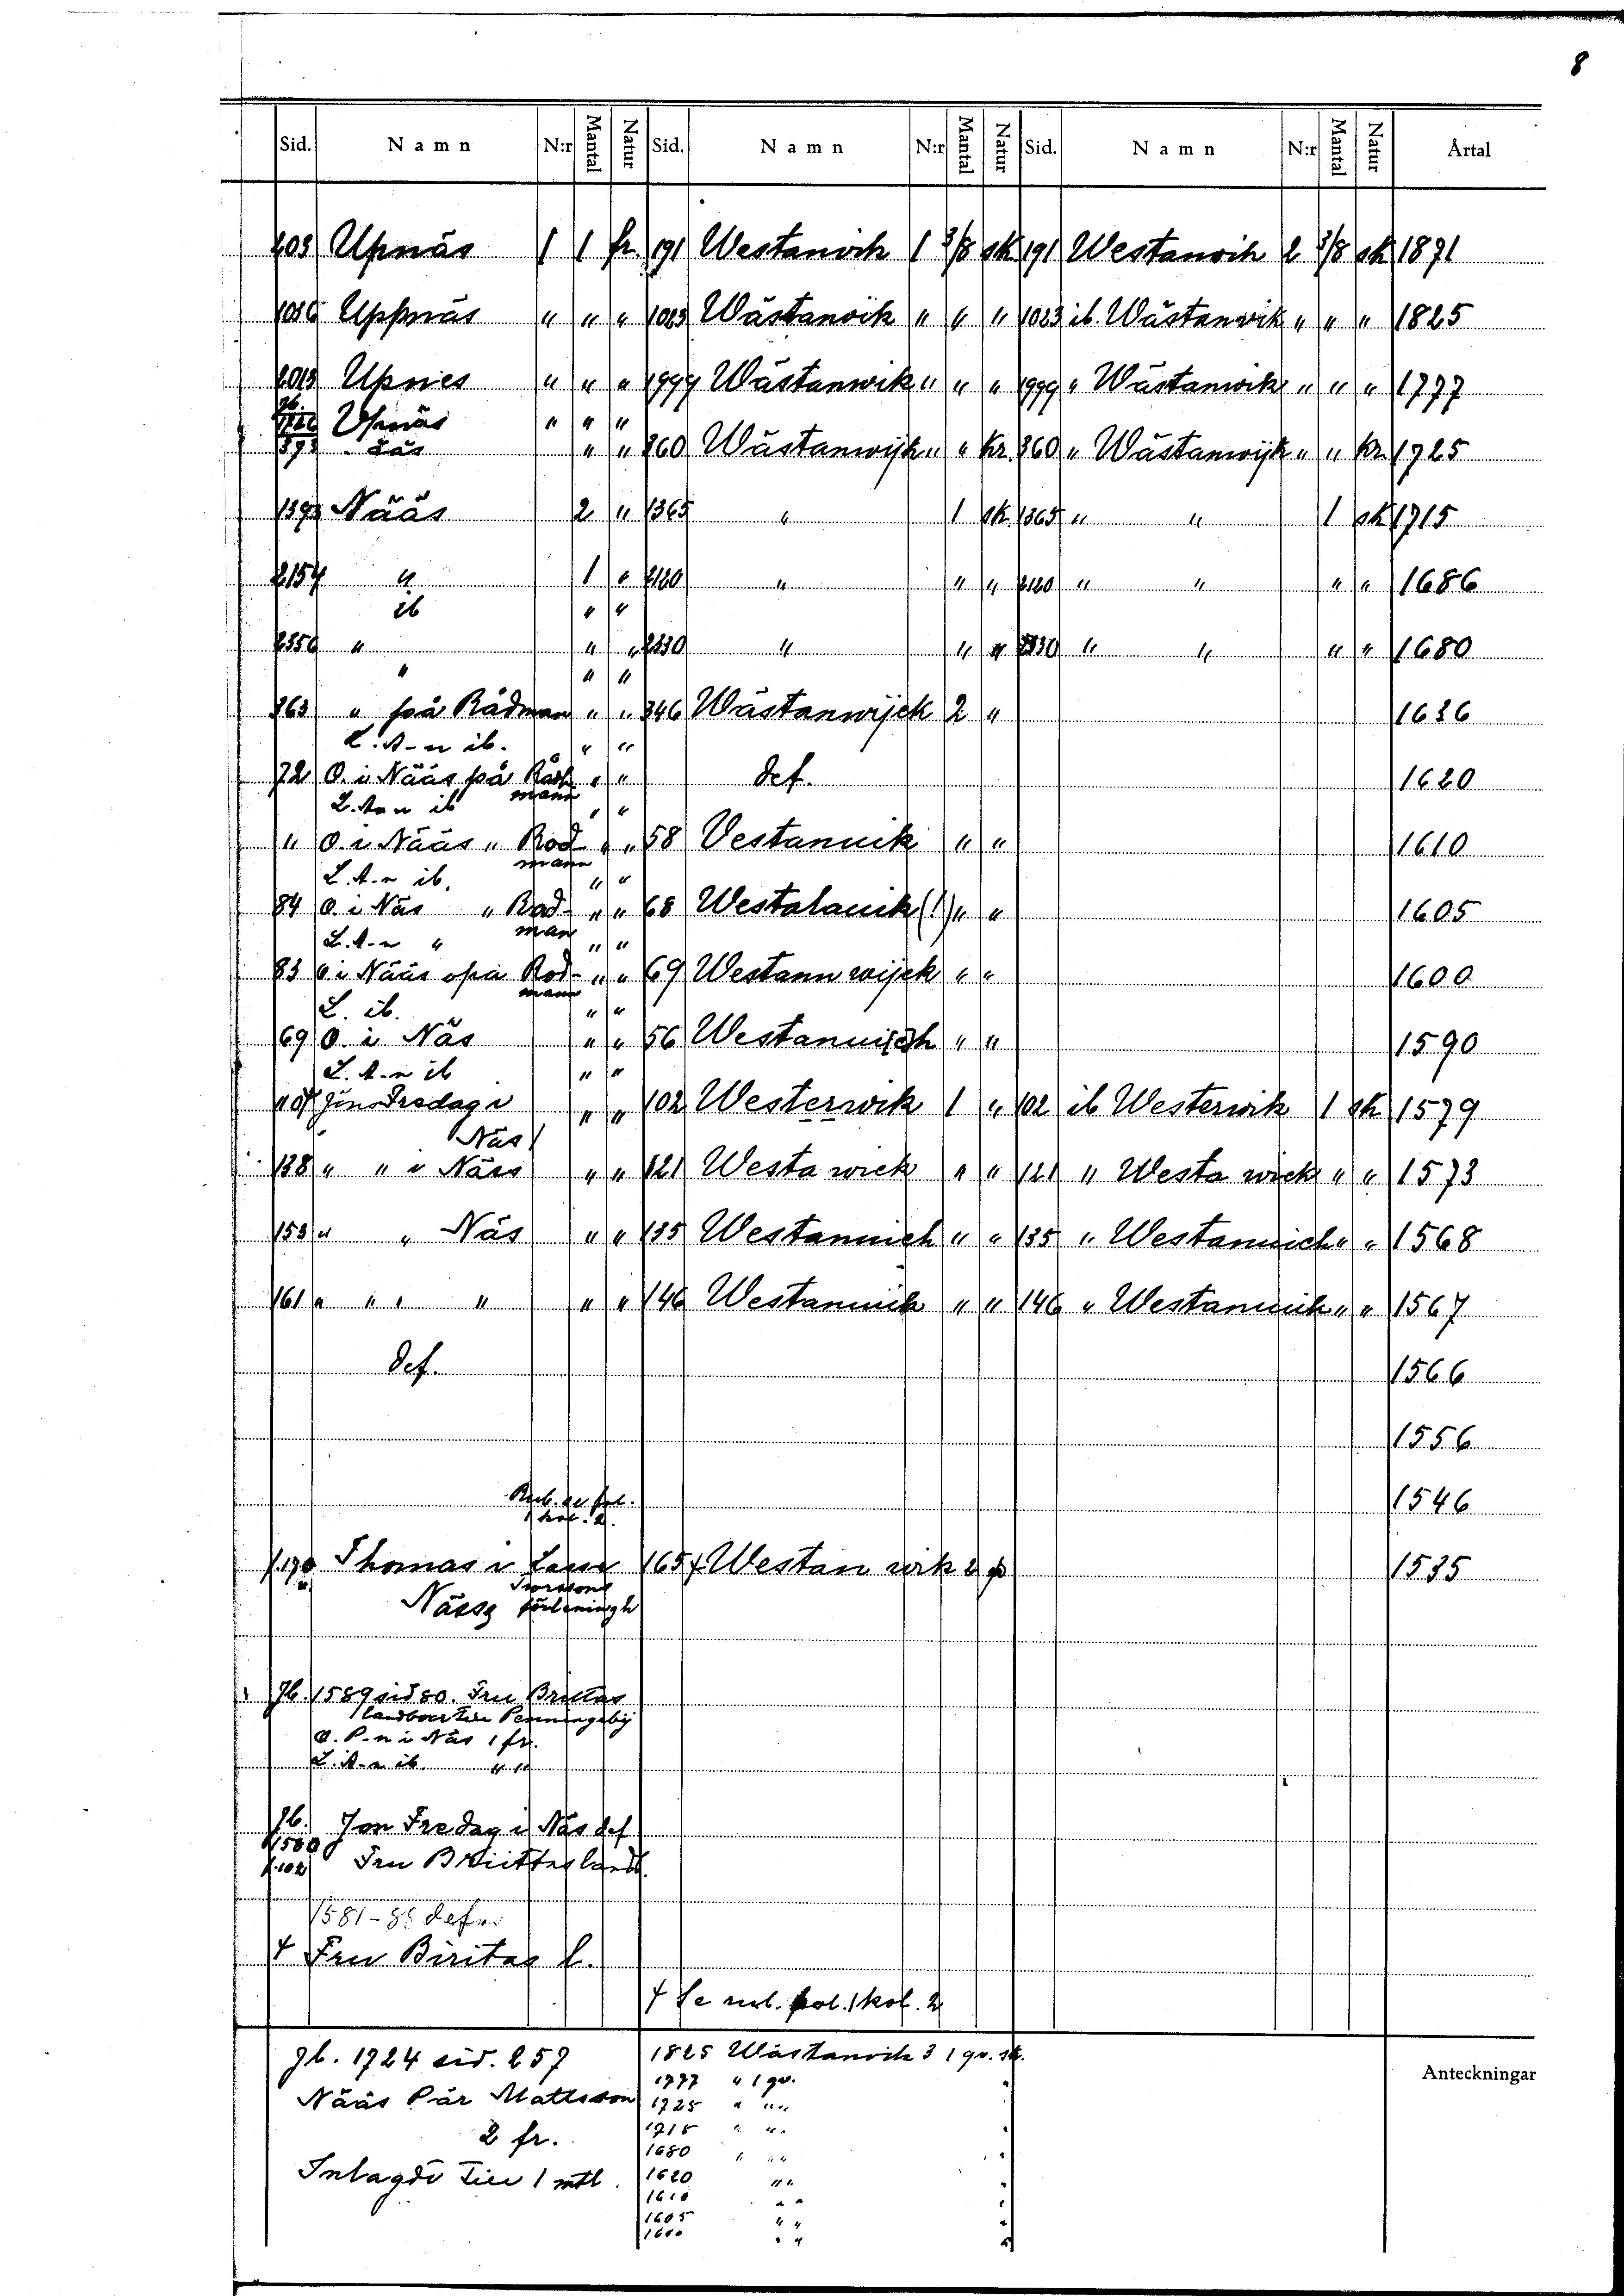 8
Sid. Namn N:r Mantal Natur Sid. Namn N:r Mantal Natur Sid. Namn N:r Mantal Natur Årtal
403 Upnäs 1 1 fr. 191 Westanvik 1 3/8 sk 191 Westanvik 2 3/8 sk 1871
1036 Uppnäs " " " 1023 Wästanvik " " " 1023 ib. Wästanvik " " " 1825
2013 Upnes " " " 1999 Wästanwik " " " 1999 " Wästanwik " " " 1777
Upnäs " " "
373 " " " 360 Wästanwijk " " kr. 360 " Wästanwijk " " kr. 1725
1393 Nääs 2 " 1365 " 1 sk. 1365 " " 1 sk 1715
2154 " 1 " 2120 " " " 2120 " " " " 1686
ib " "
2350 " " " 2330 " " " 2330 " " " " 1680
" " "
363 " på Rådman " " 346 Wästanwijck 2 " 1636
L. A-n ib. " "
72 O. i Nääs på Råd- " " def. 1620
mann
L. A-n ib " "
" O. i Nääs " Rod- " " 58 Vestanuik " " 1610
mann
L. A-n ib. " "
84 O. i Näs " Rad- " " 68 Westalauik (!) " " 1605
man
L. A-n " " "
83 O i Nääs opå Rod- " " 69 Westann wijck " " 1600
mann
L. ib. " "
69 O. i Näs " " 56 Westanui(c)h " " 1590
L. A-n ib " "
107 Jöns Fredag i " " 102 Westerwik 1 " 102 ib Westerwik 1 sk 1579
Näs
138 " " i Näss " " 121 Westa wick " " 121 " Westa wick " " 1573
153 " " Näs " " 135 Westanuich " " 135 " Westanuich " " 1568
161 " " " " " " 146 Westanuik " " 146 " Westanuik " " 1567
def. 1566
1556
Rub. se fol. 1546
1 kol. 2.
f. 170 Thomas i Lasse 165 + Westan wik 2 1535
Näss förleningh
Jb. 1589 sid 80. Fru Brittas
landboer till Penningeby
O. P-n i Näs 1 fr.
L. A-n ib. " "
Jb. Jon Fredag i Näs def
1580
f. 102 Fru Briittas landb.
1581-88 def.
+ Fru Biritas l.
+ Se rub. fol. 1 kol. 2
jb. 1724 sid. 257
Nääs Pär Mattsson
2 fr.
Inlagde till 1 mtl.
1825 Wästanvik 3 1 qv. sk.
1777 " 1 qv. "
1725 " " "
1715 " " " "
1680 " " " "
1620 " " "
1610 " " "
1605 " " "
1600 " " "
Anteckningar